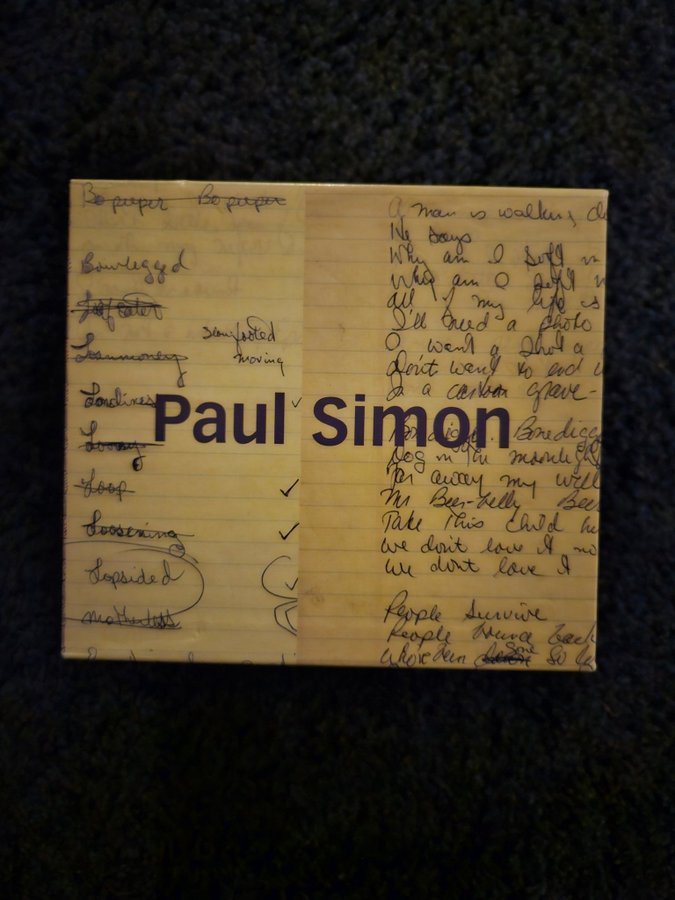 Bo peeper Bo peeper
Bowlegged
moving
Loneliness
Loop
Loosening
Lopsided
Motherless
Paul Simon
A man is walking
He says
Why am I soft
Why am I soft
all of my life is
I'll need a photo
I want a shot a
don't want to end
in a cartoon grave-
Bonedigger. Bonedigg
Dog in the moonlight
Far away my well
Mr Beer-belly Beer
Take this child
we don't love it no
we dont love it
People Survive
People bounce back
some so